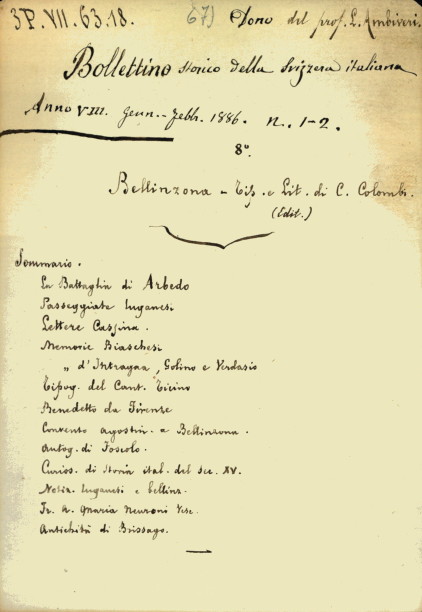 3P.VII.63.18. 67) Dono del prof. L. Ambiveri.
Bollettino storico della Svizzera italiana
Anno VIII. Genn.-Febbr. 1886. n. 1-2.
8º.
Bellinzona - Tip. e Lit. di C. Colombi.
(Edit.)
Sommario.
La Battaglia di Arbedo
Passeggiate luganesi
Lettere Cassina.
Memorie Biaschesi
„ d'Intragna, Golino e Verdasio
Tipog. del Cant. Ticino
Benedetto da Firenze
Convento agostin. a Bellinzona.
Autog. di Foscolo.
Curios. di Storia ital. del sec. XV.
Notiz. luganesi e bellinz.
Fr. A. Maria Neuroni Vesc.
Antichità di Brissago.